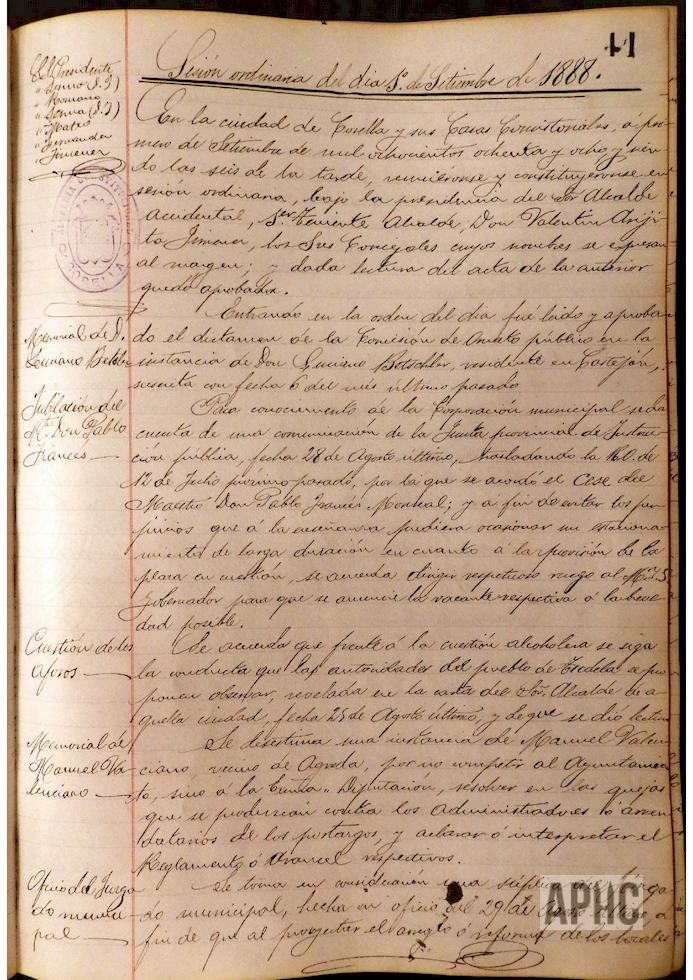 11
Sesión ordinaria del dia 1º de Setiembre de 1888.
El Presidente
" Romano
" Mateo
" Fernandez
Jimenez
En la ciudad de Corella y sus Casas Consistoriales, á pri-
mero de Setiembre de mil ochocientos ochenta y ocho y sien-
do las seis de la tarde, reuniéronse y constituyeronse en
sesión ordinaria, bajo la presidencia del Sor Alcalde
accidental, 1er Teniente Alcalde, Don Valentin Arigi-
ta Jimenez, los Sres Concejales cuyos nombres se expresan
al margen; y dada lectura del acta de la anterior
quedó aprobada.
Memorial de D.
Luciano
Entrando en la orden del dia fué leido y aproba-
do el dictamen de la Comisión de Ornato público en la
instancia de Don Luciano Betschler, residente en Castejón,
suscrita con fecha 6 del mes último pasado
Jubilación del
Mtro Don Pablo
Frances
Para conocimiento de la Corporación municipal se dá
cuenta de una comunicación de la Junta provincial de Instruc-
ción pública, fecha 28 de Agosto último, trasladando la R.O. de
12 de Julio próximo pasado, por la que se acordó el Cese del
Maestro Don Pablo Francés Monreal; y á fin de evitar los per-
juicios que á la enseñanza pudiera ocasionar un estaciona-
miento de larga duración en cuanto á la provisión de la
plaza en cuestión, se acuerda dirigir respetuoso ruego al
Gobernador para que se anuncie la vacante respectiva á la breve-
dad posible.
Cuestión de los
aforos
Se acuerda que frente á la cuestión alcoholera se siga
la conducta que las autoridades del pueblo de Tudela se pro-
ponen observar, revelada en la carta del Sor. Alcalde de a-
quella ciudad, fecha 25 de Agosto último, y de que se dió lectura
Memorial de
Manuel Va-
lenciano
Se desestima una instancia de Manuel Valen-
ciano, vecino de Agreda, por no competir al Ayuntamien-
to, sino á la Excma. Diputación, resolver en las quejas
que se produzcan contra los Administradores ó arren-
datarios de los portazgos, y aclarar ó interpretar el
Reglamento ó Arancel respectivos.
Oficio del Juzga-
do munici-
pal
Se toma en consideración una súplica del Juzga-
do municipal, hecha en oficio del 29 de Agosto último, a
fin de que al proyectar el arreglo ó reforma de los locales
APHC